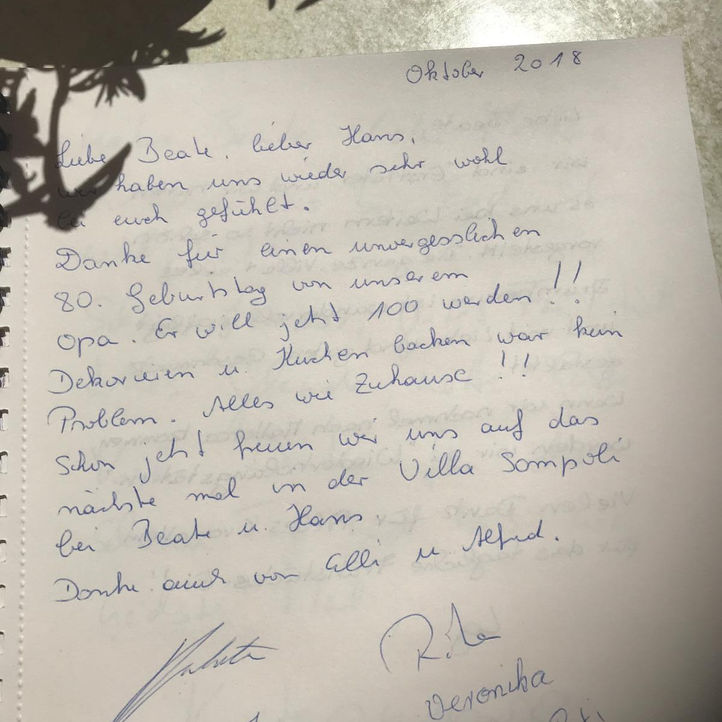 Oktober 2018
Liebe Beate, lieber Hans,
wir haben uns wieder sehr wohl
bei euch gefühlt.
Danke für einen unvergesslichen
80. Geburtstag von unserem
Opa. Er will jetzt 100 werden!!
Dekorieren u. Kuchen backen war kein
Problem. Alles wie Zuhause!!
Schon jetzt freuen wir uns auf das
nächste mal in der Villa Sompoli
bei Beate u. Hans
Danke auch von Elli u. Alfred.
Rita
Veronika